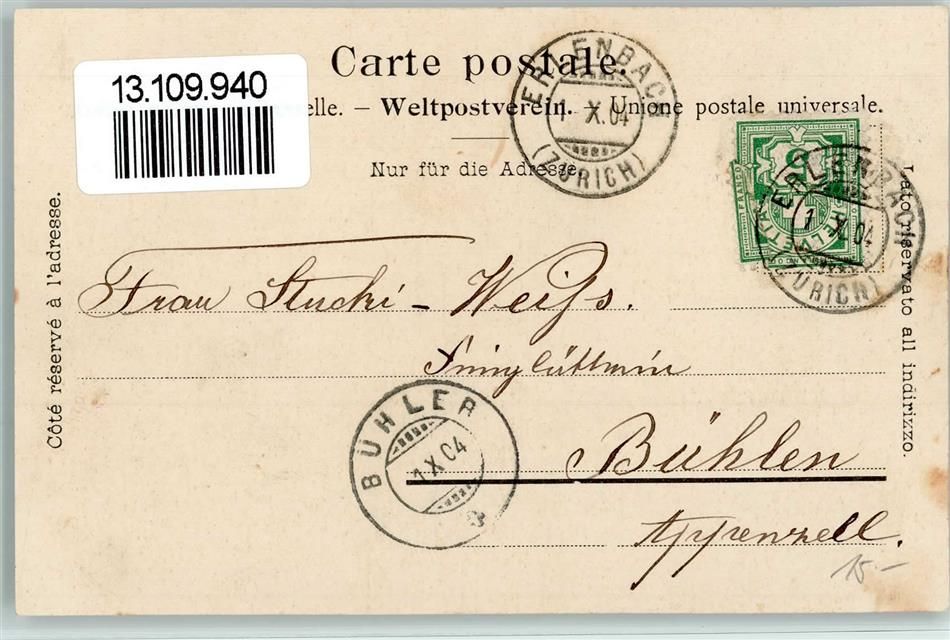 Carte postale.
13.109.940
elle. – Weltpostverein. – Unione postale universale.
Nur für die Adresse.
ERLENBACH
1. X.04
(ZÜRICH)
FRANCO
5
HELVETIA
ERLENBACH
1. X.04
(ZÜRICH)
Côté réservé à l'adresse.
Lato riservato all indirizzo.
Frau Stucki – Weiss.
Feinglätterin
BÜHLER
1 X 04
Bühlen
Appenzell.
15.–